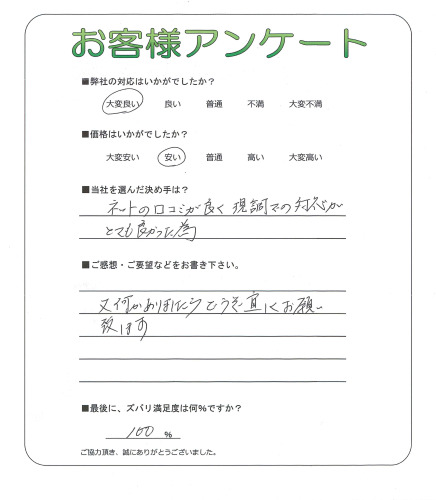 お客様アンケート
■弊社の対応はいかがでしたか？
大変良い 良い 普通 不満 大変不満
■価格はいかがでしたか？
大変安い 安い 普通 高い 大変高い
■当社を選んだ決め手は？
ネットの口コミが良く 現調での対応が
とても良かった為
■ご感想・ご要望などをお書き下さい。
又何かありましたらどうぞ宜しくお願い
致します
■最後に、ズバリ満足度は何%ですか？
100 %
ご協力頂き、誠にありがとうございました。